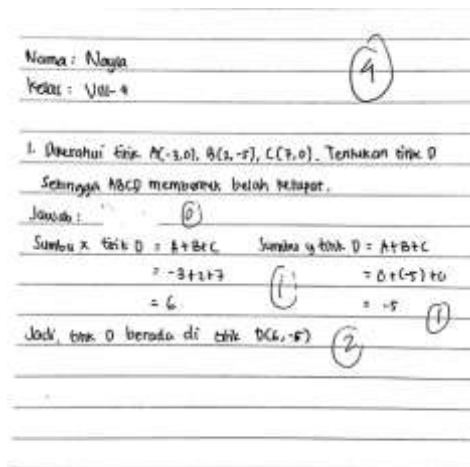 Nama : Nayla
4
Kelas : VIII-4
1. Diketahui titik A(-3,0), B(2,-5), C(7,0). Tentukan titik D
Sehingga ABCD membentuk belah ketupat.
Jawab :
0
Sumbu x titik D = A+B+C Sumbu y titik D = A+B+C
= -3+2+7 = 0+(-5)+0
1
= 6 = -5
1
Jadi, titik D berada di titik D(6,-5)
2